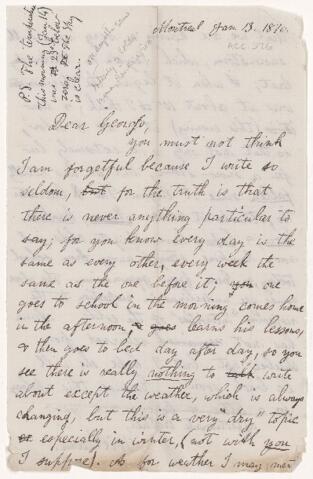 Montreal Jan 13. 187
ACC. 526
P.S. The temperature
this morning (Jan 14)
was 23° below
zero, The sky
is clear.
Dear George,
you must not think
I am forgetful because I write so
seldom, but for the truth is that
there is never anything particular to
say; for you know every day is the
same as every other, every week the
same as the one before it; you one
goes to school in the morning comes home
in the afternoon, & goes learns his lessons,
& then goes to bed day after day, so you
see there is really nothing to talk write
about except the weather, which is always
changing, but this is a very "dry" topic
or especially in winter, (not with you
I suppose). As for weather I may men